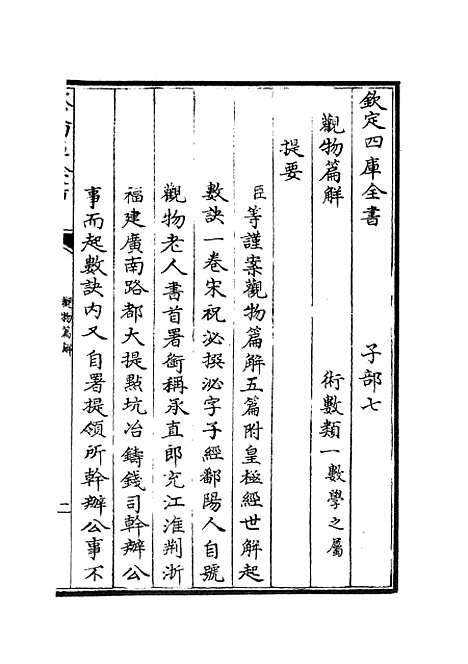 欽定四庫全書 子部七
觀物篇解 術數類一數學之屬
提要
臣等謹案觀物篇解五篇附皇極經世解起
數訣一卷宋祝泌撰泌字子經鄱陽人自號
觀物老人書首署銜稱承直郎充江淮荆浙
福建廣南路都大提㸃坑冶鑄錢司幹辦公
事而起數訣内又自署提領所幹辦公事不
觀物篇解
二